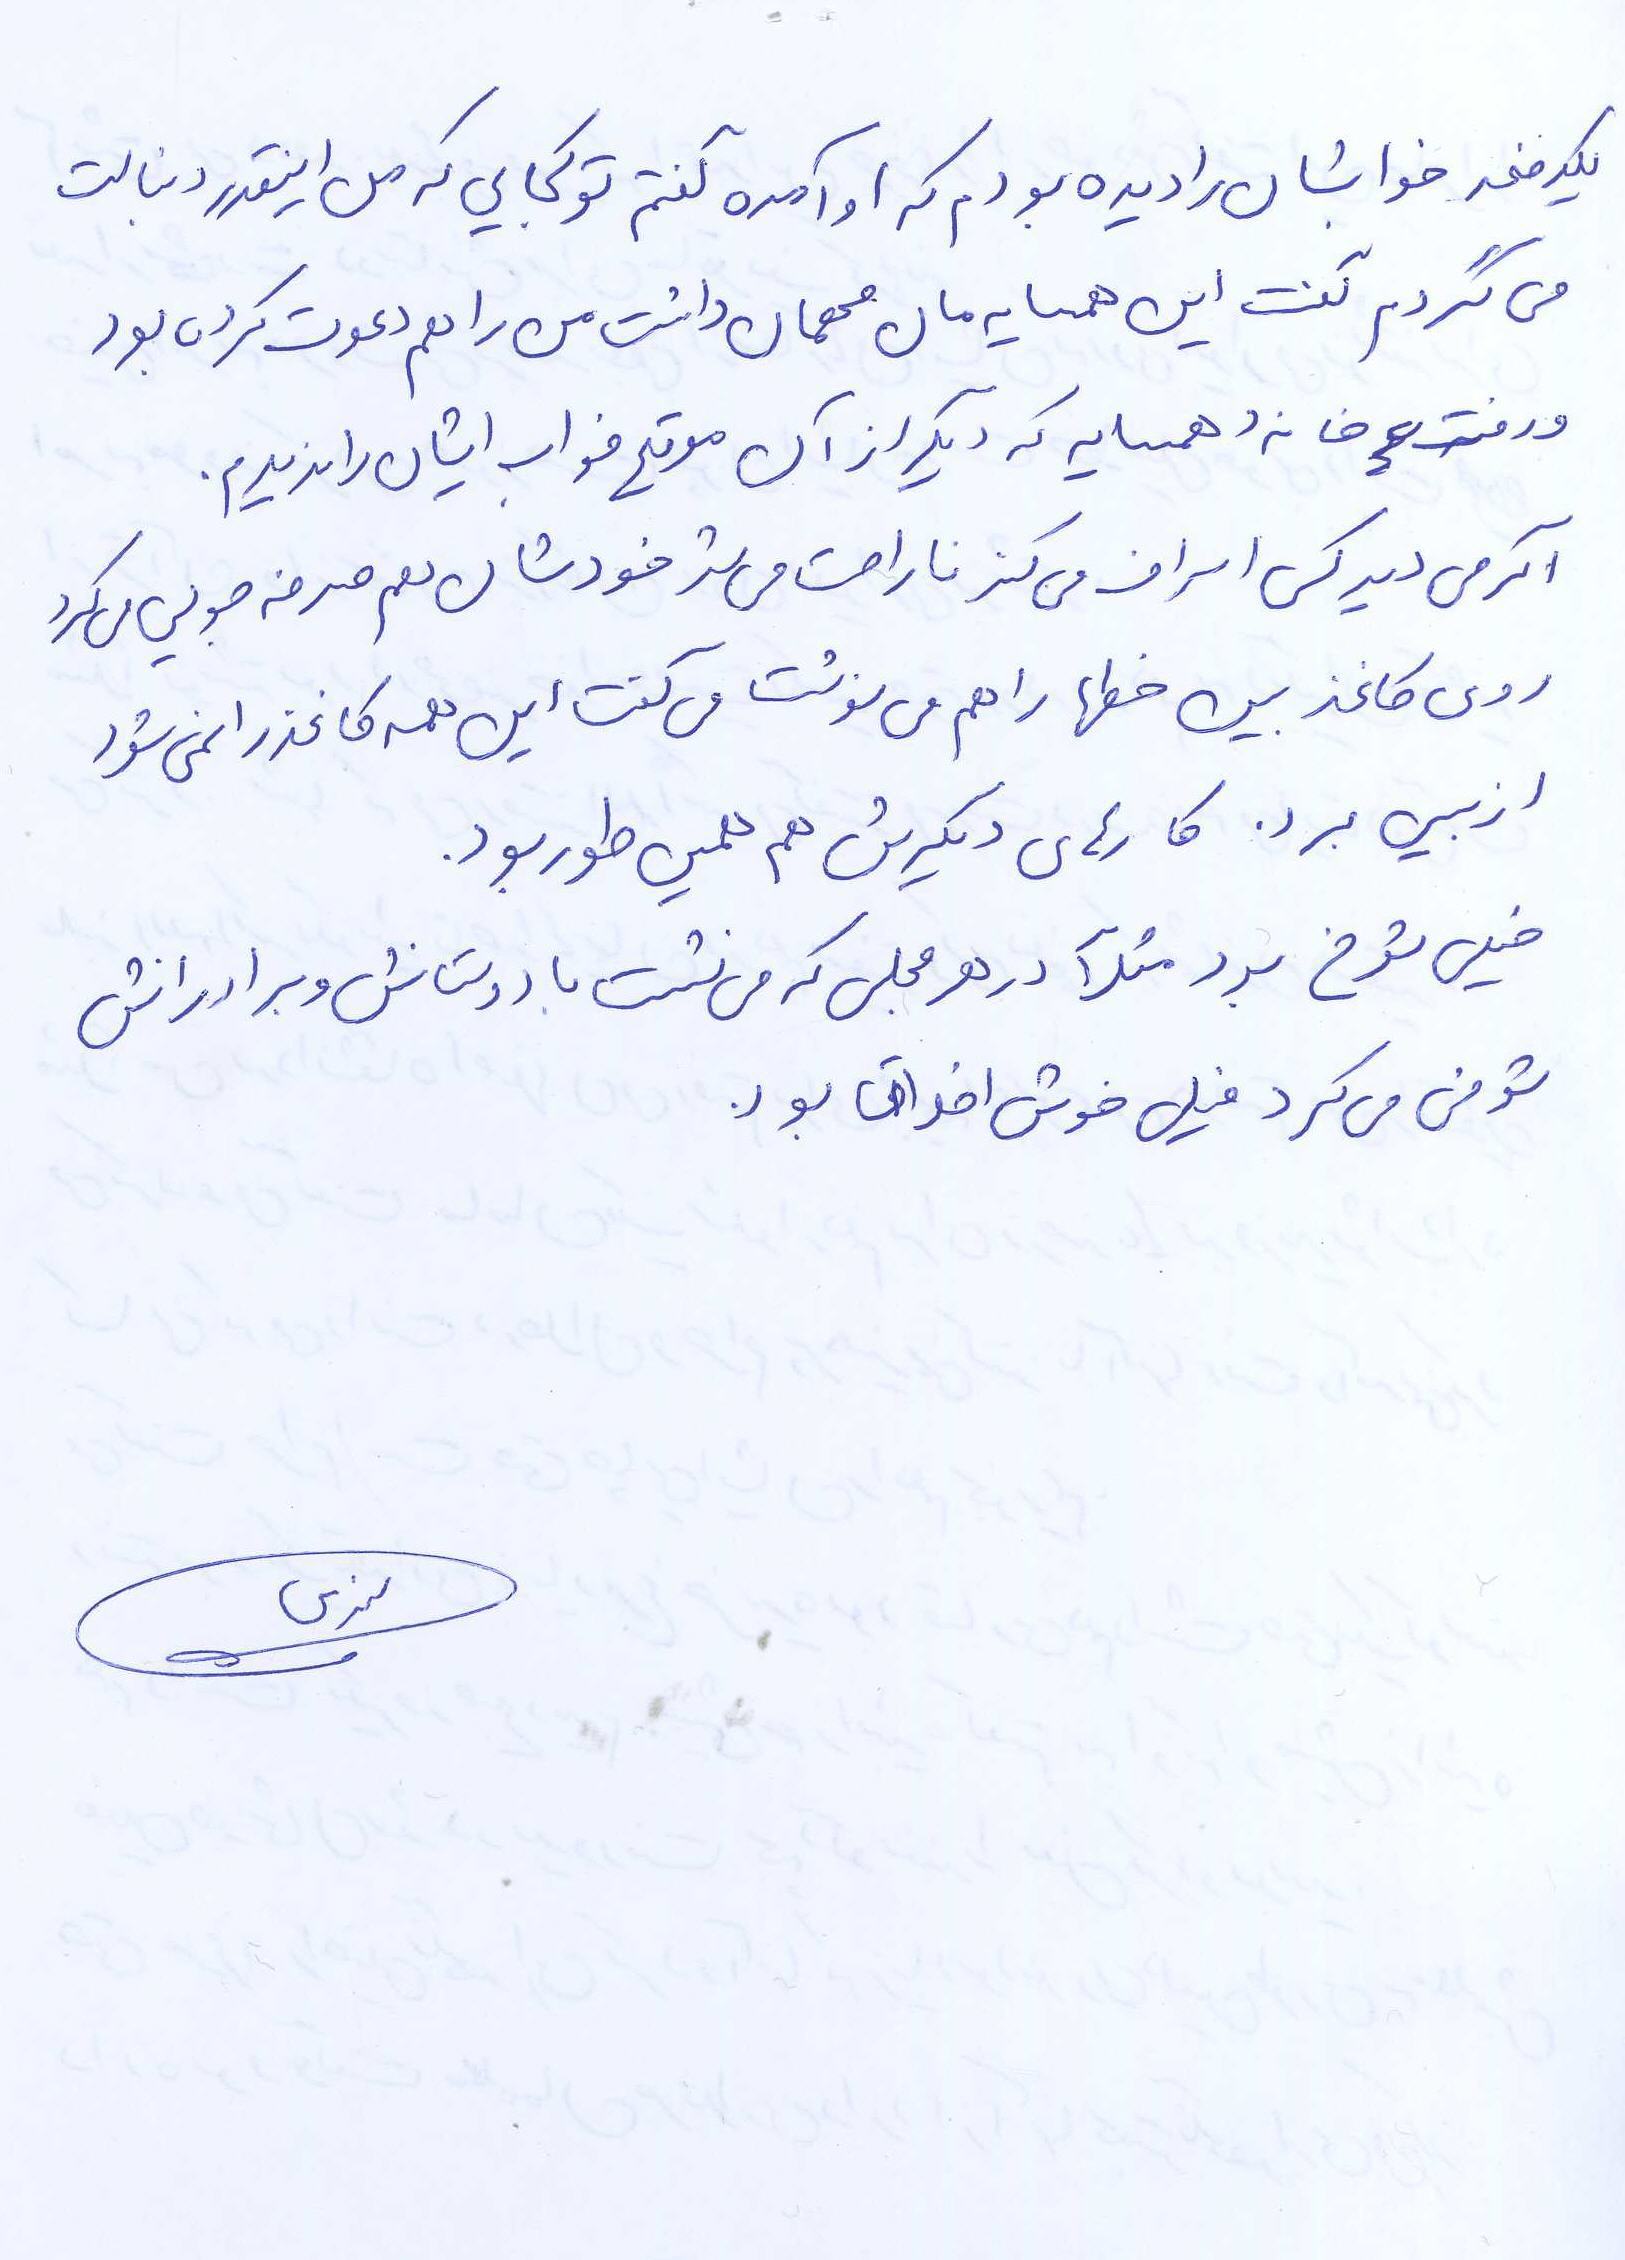 یکدفعه خوابشان را دیده بودم که او آمده گفتم تو کجایی که من اینقدر دنبالت
می گردم گفت این همسایه مان مهمان داشت من را هم دعوت کرده بود
و رفت خانه همسایه که دیگر از آن موقع خواب ایشان را ندیدم.
اگر می دید کسی اسراف می کند ناراحت می شد خودشان هم صرفه جویی می کرد
روی کاغذ بین خطها را هم می نوشت می گفت این همه کاغذ را نمی شود
از بین برد. کارهای دیگرش هم همین طور بود.
خیلی شوخ بود مثلاً در هر مجلسی که می نشست با دوستانش و برادرانش
شوخی می کرد خیلی خوش اخلاق بود.